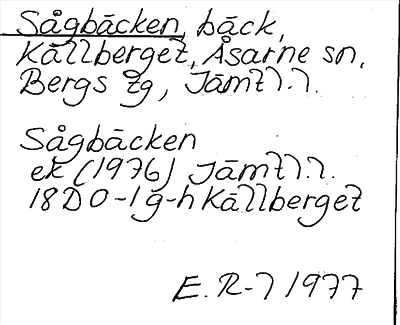 Sågbäcken, bäck,
Källberget, Åsarne sn,
Bergs tg, Jämtl.l.
Sågbäcken
ek (1976) Jämtl.l.
18D 0-1 g-h Källberget
E. R-l 1977